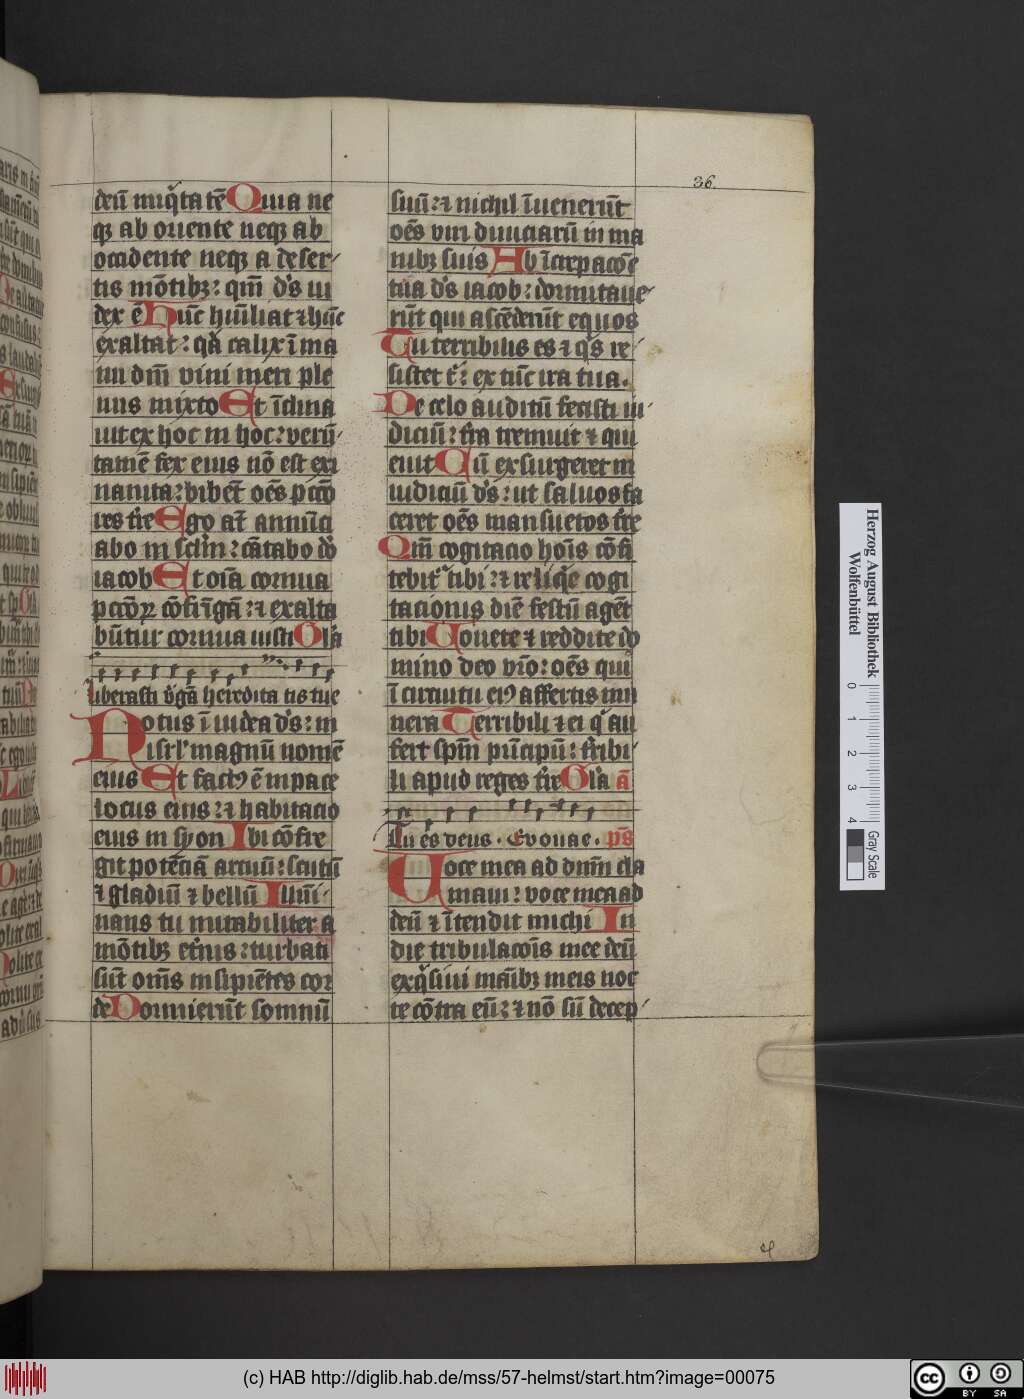 36.
deū iniq̄tatē Quia ne
qꝫ ab oriente neqꝫ ab
occidente neqꝫ a deser
tis mōtibꝫ: qm̄ ds̄ iu
dex ē Hūc hūiliat ⁊ hūc
exaltat: qa calix ī ma
nu dn̄i vini meri ple
nus mixto Et īclina
uit ex hoc in hoc: verū
tamē fex eius nō est exi
nanita: bibēt oēs pctō
res tre Ego at annūci
abo in sclm̄: cātabo dō
iacob Et oīa cornua
pctōꝝ cōfrīgā: ⁊ exalta
būtur cornua iusti Gl̄a
Liberasti v̓gā heredita tis tue
Notus ī iudea ds̄: in
isrl̄ magnū nomē
eius Et factꝰ ē in pace
locus eius: ⁊ habitacio
eius in syon Ibi cōfre
git potētiā arcuū: scutū
⁊ gladiū ⁊ bellū Illūi
nans tu mirabiliter a
mōtibꝫ et̄nis: turbati
sūt om̄s insipiētes cor
de Dormierūt somnū
suū: ⁊ nichil īuenerūt
oēs viri diuiciarū in ma
nibꝫ suis Ab īcrepacōe
tua ds̄ iacob: dormitaue
rūt qui ascēderūt equos
Tu terribilis es ⁊ qs̄ re
sistet t̄: ex tūc ira tua.
De celo auditū fecisti iu
diciū: tra tremuit ⁊ qui
euit Cū exsurgeret in
iudiciū ds̄: ut saluos fa
ceret oēs mansuetos tre
Qm̄ cogitacio hoīs cōfi
tebit̄ tibi: ⁊ reliq̄e cogi
tacionis diē festū agēt
tibi Vouete ⁊ reddite do
mino deo vr̄o: oēs qui
ī circuitu eiꝰ affertis mu
nera Terribili ⁊ ei q̄ au
fert spm̄ pūcipū: tribi
li apud reges tre Gl̄a a̅
Tu es deus. Evovae. ps̄
Voce mea ad dnm̄ cla
maui: voce mea ad
deū ⁊ ītendit michi In
die tribulacōis mee deū
exq̄siui manibꝫ meis noc
te cōtra eū: ⁊ nō sū decep
Herzog August Bibliothek
Wolfenbüttel
0 1 2 3 4
Gray Scale
(c) HAB http://diglib.hab.de/mss/57-helmst/start.htm?image=00075
cc BY SA